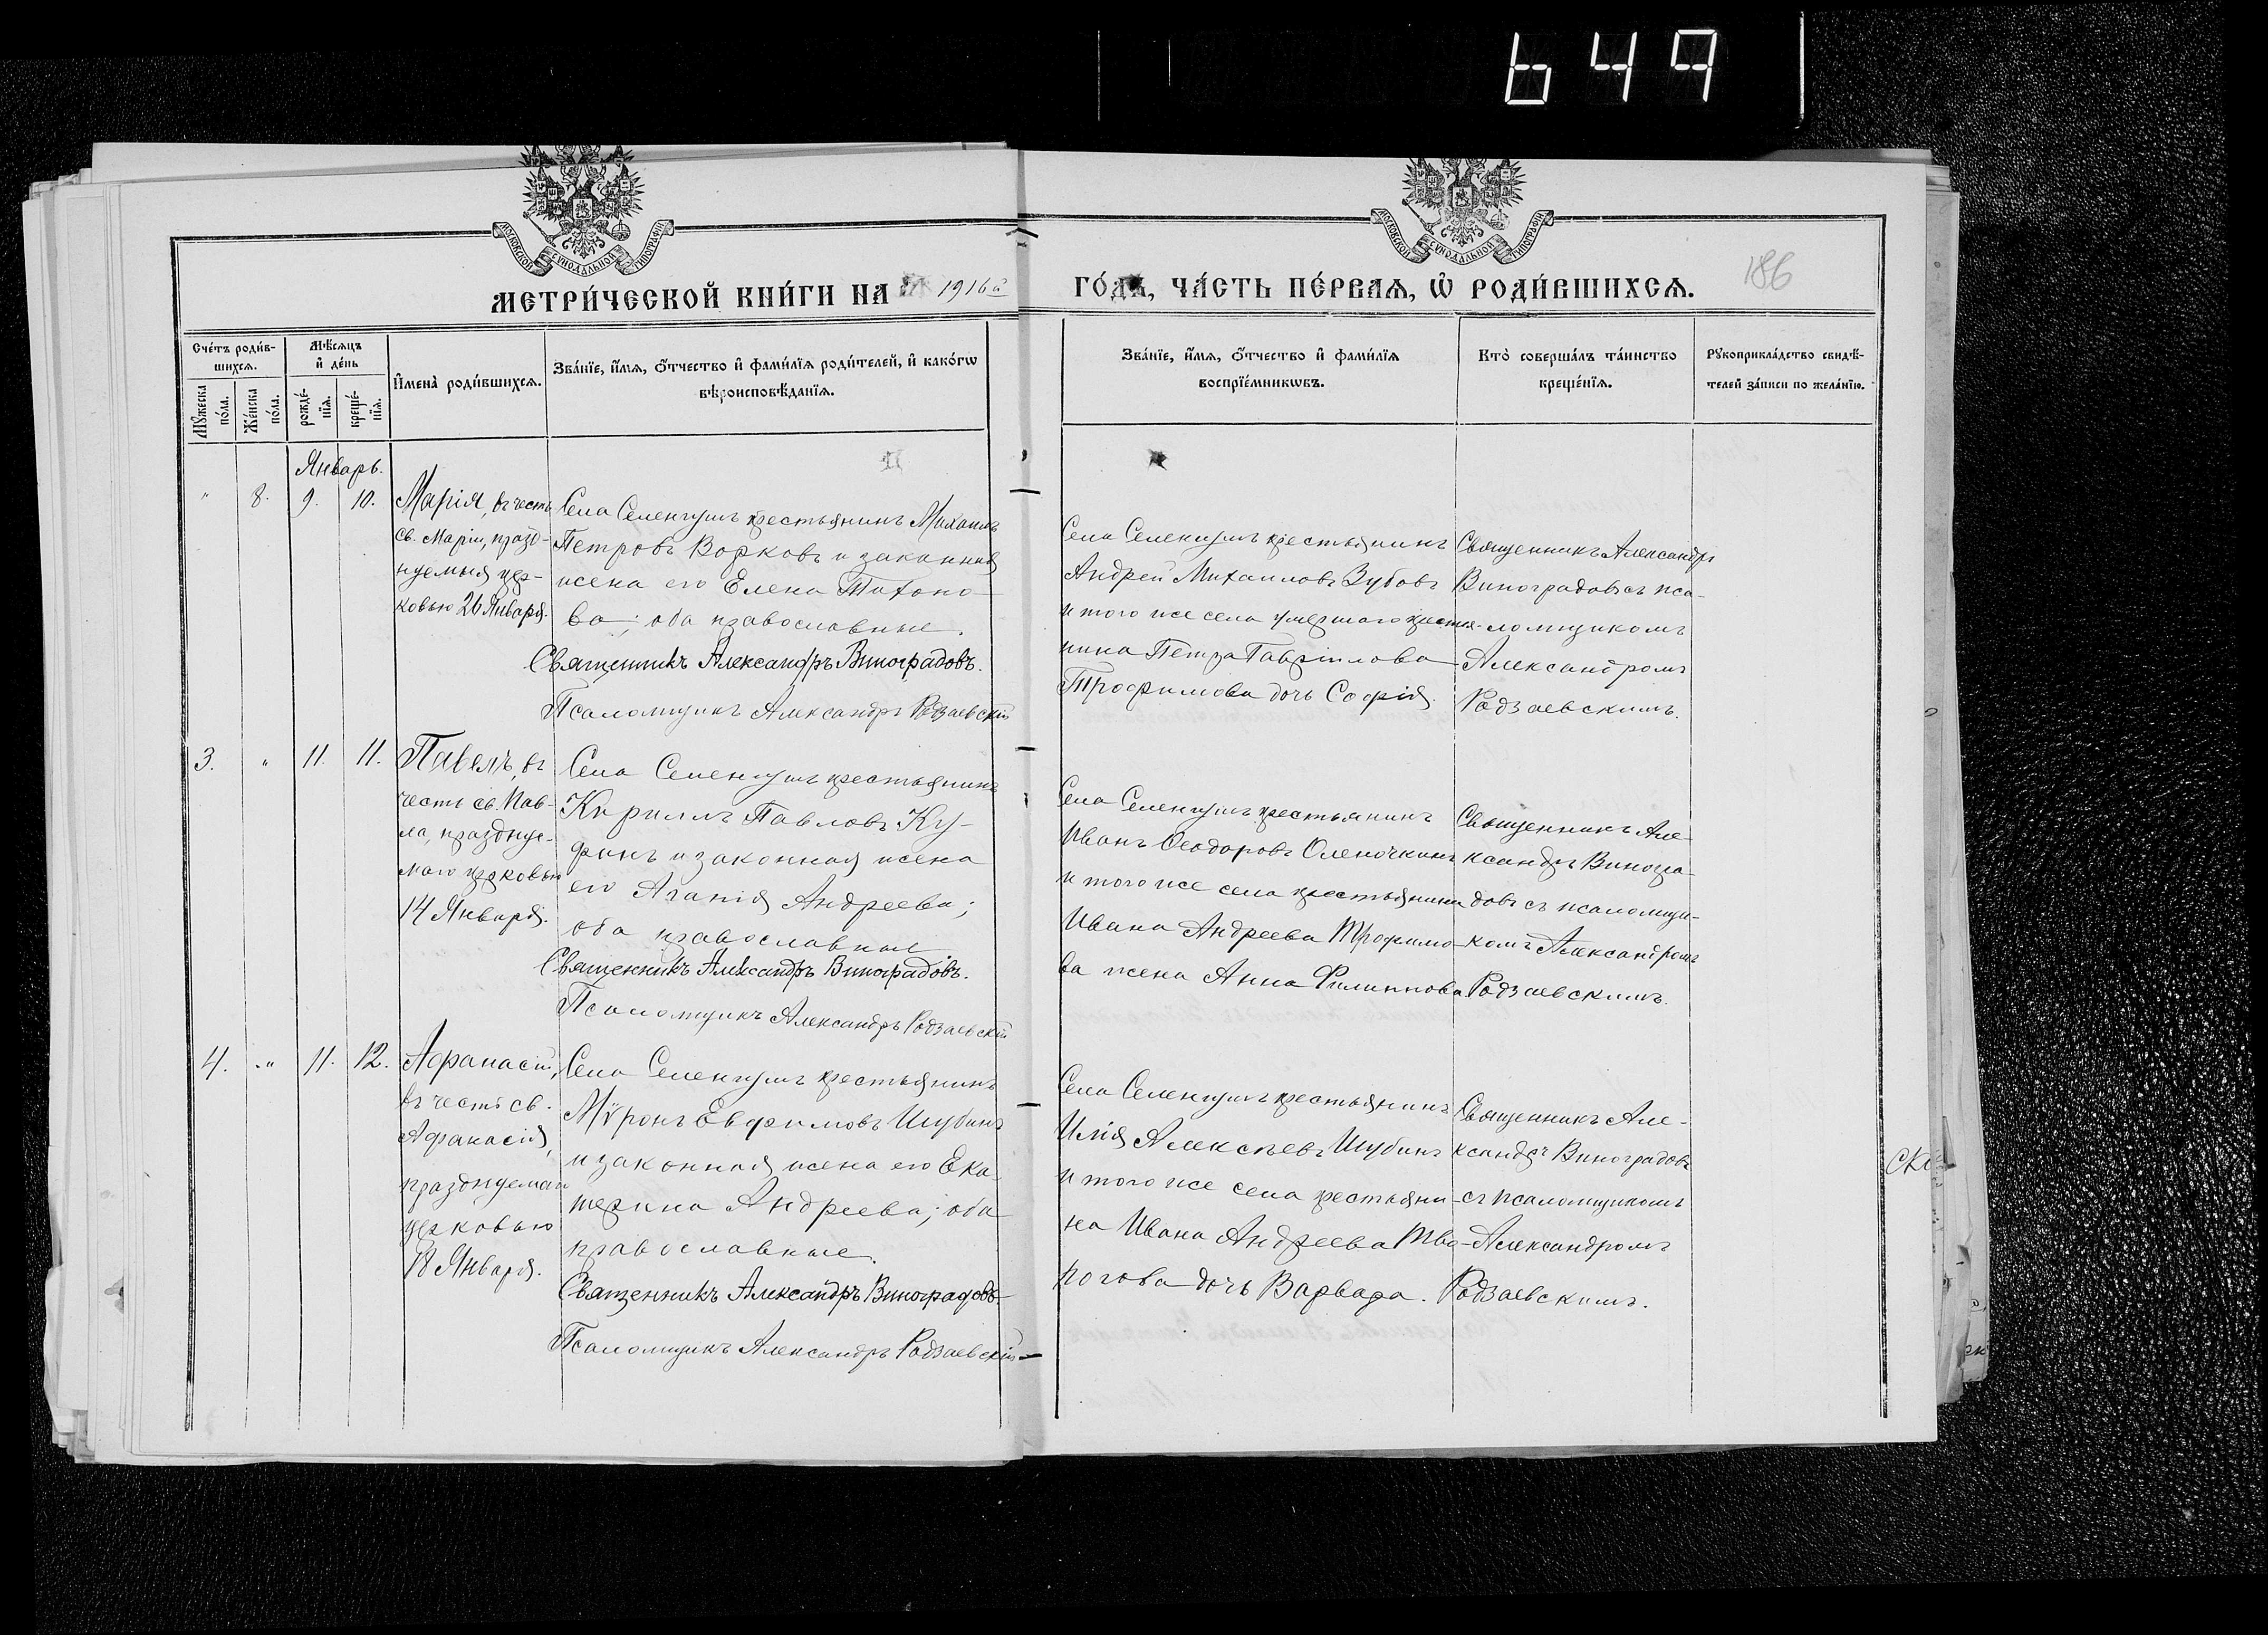 649
МОСКОВСКОЙ СУНОДАЛЬНОЙ ТИПОГРАФІИ
МОСКОВСКОЙ СУНОДАЛЬНОЙ ТИПОГРАФІИ
186
МЕТРИ́ЧЕСКОЙ КНИ́ГИ НА 1916й ГО́ДЪ, ЧА́СТЬ ПЕ́РВАѦ, Ѡ҆ РОДИ́ВШИХСѦ.
Сче́тъ роди́в-
шихсѧ.
Мꙋ́жеска по́ла.
Же́нска по́ла.
Мѣ́сѧцъ
и҆ де́нь
рожде́-
нїѧ.
креще́-
нїѧ.
И҆мена̀ роди́вшихсѧ.
Зва́нїе, и҆́мѧ, ѻ҆́тчество и҆ фами́лїѧ роди́телей, и҆ како́гѡ
вѣроисповѣ́данїѧ.
Зва́нїе, и҆́мѧ, ѻ҆́тчество и҆ фами́лїѧ
воспрїе́мникѡвъ.
Кто̀ соверша́лъ та́инство
креще́нїѧ.
Рꙋкоприкла́дство свидѣ́-
телей за́писи по жела́нїю.
Январь.
" 8. 9. 10.
Марія, въ честь
св. Маріи, празд-
нуемыя цер-
ковью 26 Января.
Села Селенгушъ крестьянинъ Михаилъ
Петровъ Ворковъ и законная
жена его Елена Тихоно-
ва; оба православные.
Священникъ Александръ Виноградовъ.
Псаломщикъ Александръ Родзаевскій
Села Селенгушъ крестьянинъ
Андрей Михаиловъ Зубовъ
и того же села умершаго крестья-
нина Петра Гавріилова
Трофимова дочь Софія.
Священникъ Александръ
Виноградовъ съ пса-
ломщикомъ
Александромъ
Родзаевскимъ.
3. " 11. 11.
Павелъ, въ
честь св. Пав-
ла, празднуе-
маго церковью
14 Января.
Села Селенгушъ крестьянинъ
Кириллъ Павловъ Ку-
финъ и законная жена
его Агапія Андреева;
оба православные
Священникъ Александръ Виноградовъ.
Псаломщикъ Александръ Родзаевскій
Села Селенгушъ крестьянинъ
Иванъ Ѳеодоровъ Оленочкинъ
и того же села крестьянина
Ивана Андреева Трофимо-
ва жена Анна Филиппова
Священникъ Але-
ксандръ Виногра-
довъ съ псаломщи-
комъ Александромъ
Родзаевскимъ.
4. " 11. 12.
Афанасій,
въ честь св.
Афанасія,
празднуемаго
церковью
18 Января.
Села Селенгушъ крестьянинъ
Мѵронъ Евфимовъ Шубинъ
и законная жена его Ека-
терина Андреева; оба
православные.
Священникъ Александръ Виноградовъ.
Псаломщикъ Александръ Родзаевскій
Села Селенгушъ крестьянинъ
Илія Алексѣевъ Шубинъ
и того же села крестьяни-
на Ивана Андреева Тво-
рогова дочь Варвара.
Священникъ Але-
ксандръ Виноградовъ
съ псаломщикомъ
Александромъ
Родзаевскимъ.